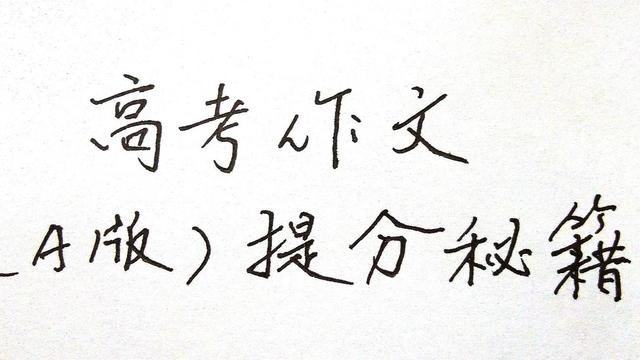 高考作文
A版）提分秘籍